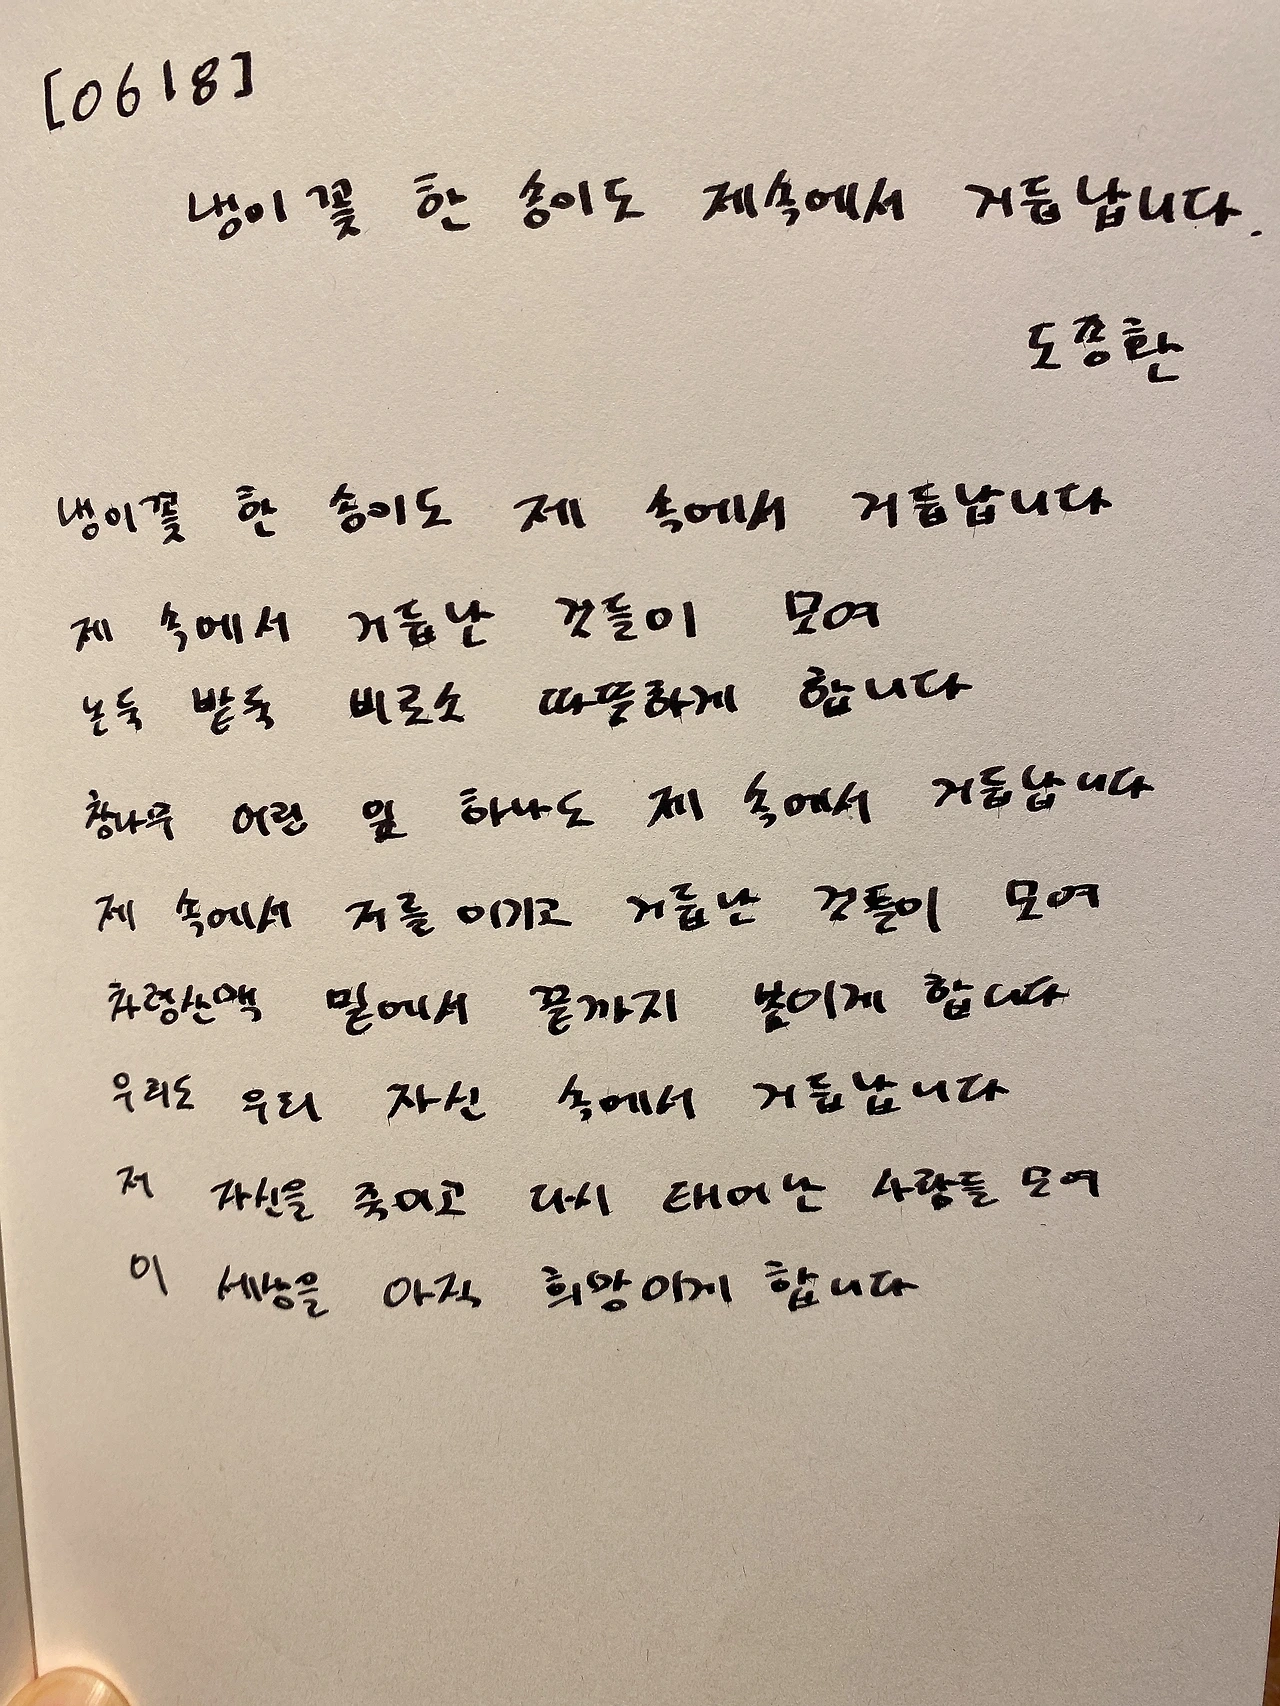 [0618]
냉이꽃 한 송이도 제속에서 거듭납니다.
도종환
냉이꽃 한 송이도 제 속에서 거듭납니다
제 속에서 거듭난 것들이 모여
논둑 밭둑 비로소 따뜻하게 합니다
참나무 어린 잎 하나도 제 속에서 거듭납니다
제 속에서 저를 이기고 거듭난 것들이 모여
차령산맥 밑에서 끝까지 봄이게 합니다
우리도 우리 자신 속에서 거듭납니다
저 자신을 죽이고 다시 태어난 사람들 모여
이 세상을 아직 희망이게 합니다